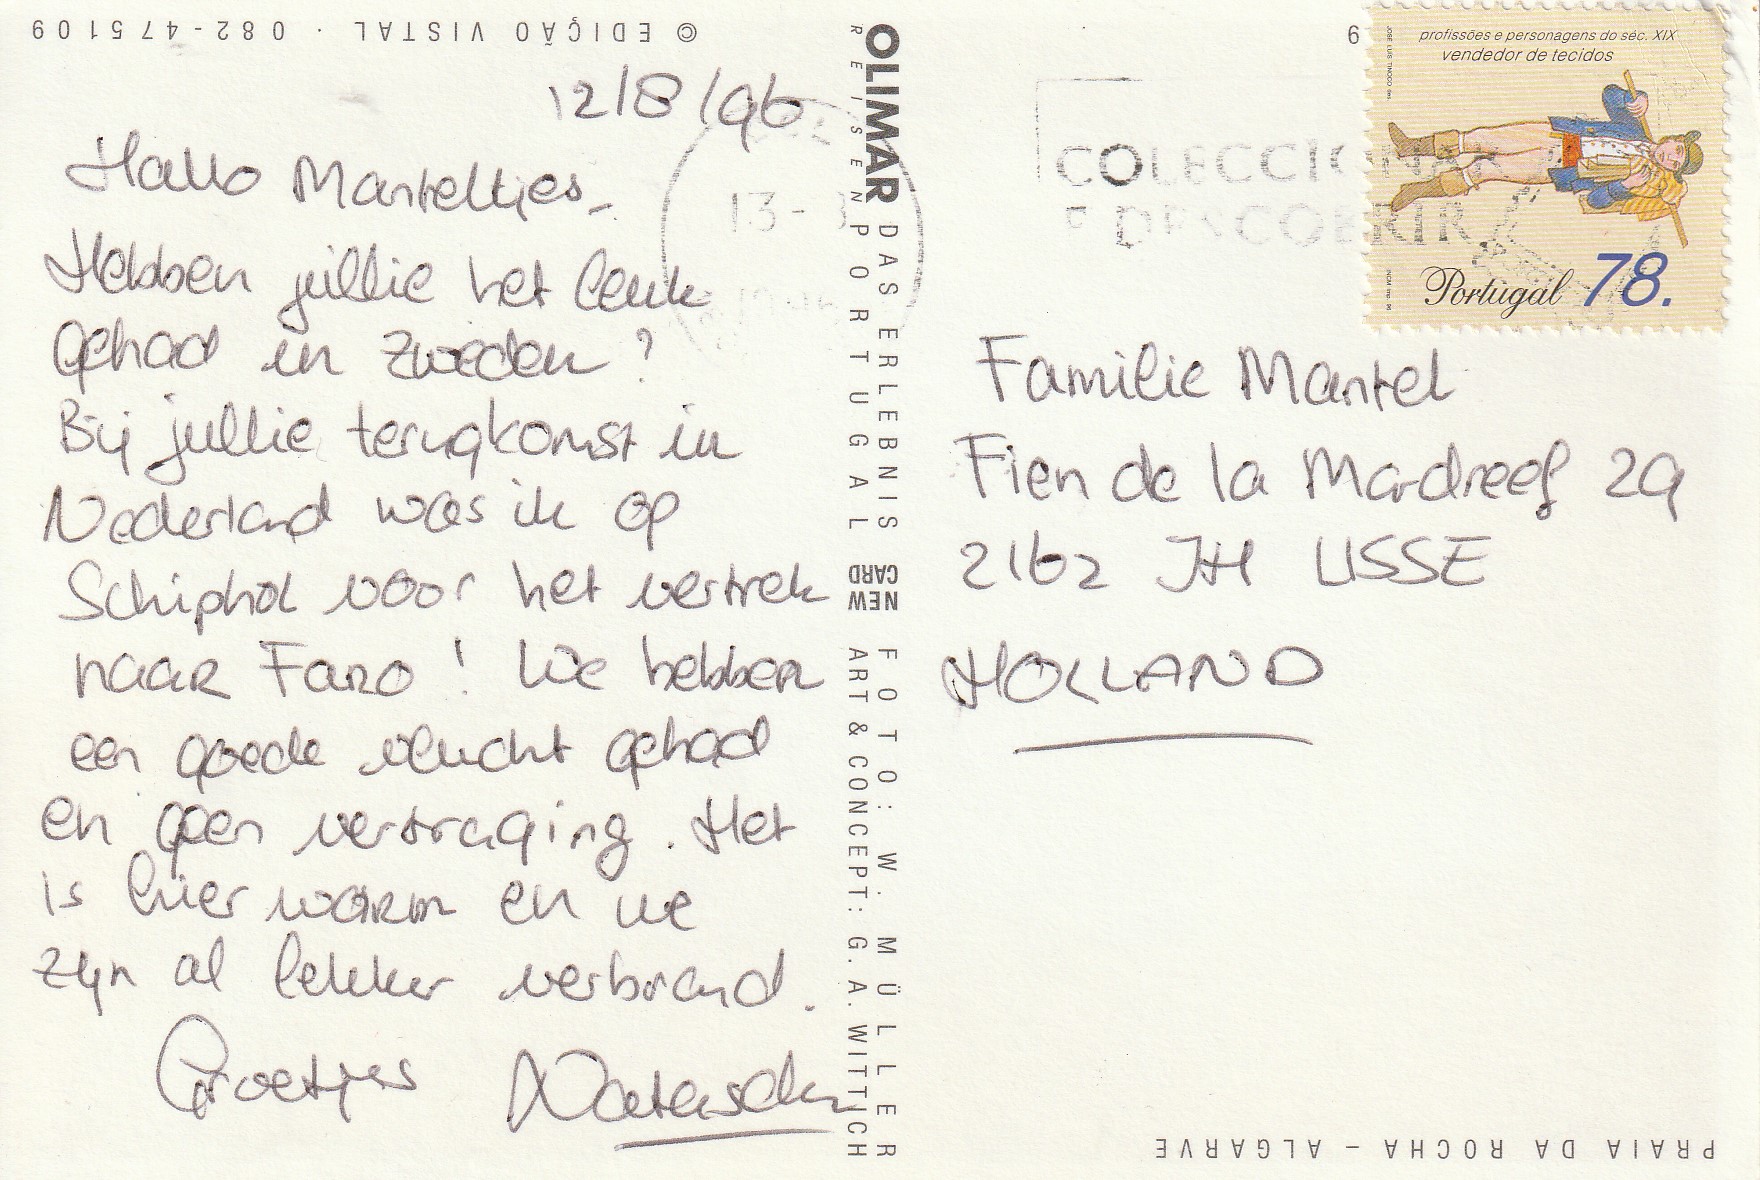 © EDIÇÃO VISTAL · 082-475109
12/8/96
Hallo Manteltjes,
Hebben jullie het leuk
gehad in Zweden?
Bij jullie terugkomst in
Nederland was ik op
Schiphol voor het vertrek
naar Faro! We hebben
een goede vlucht gehad
en geen vertraging. Het
is hier warm en we
zijn al lekker verbrand.
Groetjes Natascha
OLIMAR DAS ERLEBNIS NEW CARD FOTO: W. MÜLLER
REISEN PORTUGAL ART & CONCEPT: G. A. WITTICH
9
COLECCIONAR
E DESCOBRIR
13-8
profissões e personagens do séc. XIX
vendedor de tecidos
JOSÉ LUÍS TINOCO des.
INCM imp. 96
Portugal 78.
Familie Mantel
Fien de la Mardreef 29
2162 JH LISSE
HOLLAND
PRAIA DA ROCHA – ALGARVE